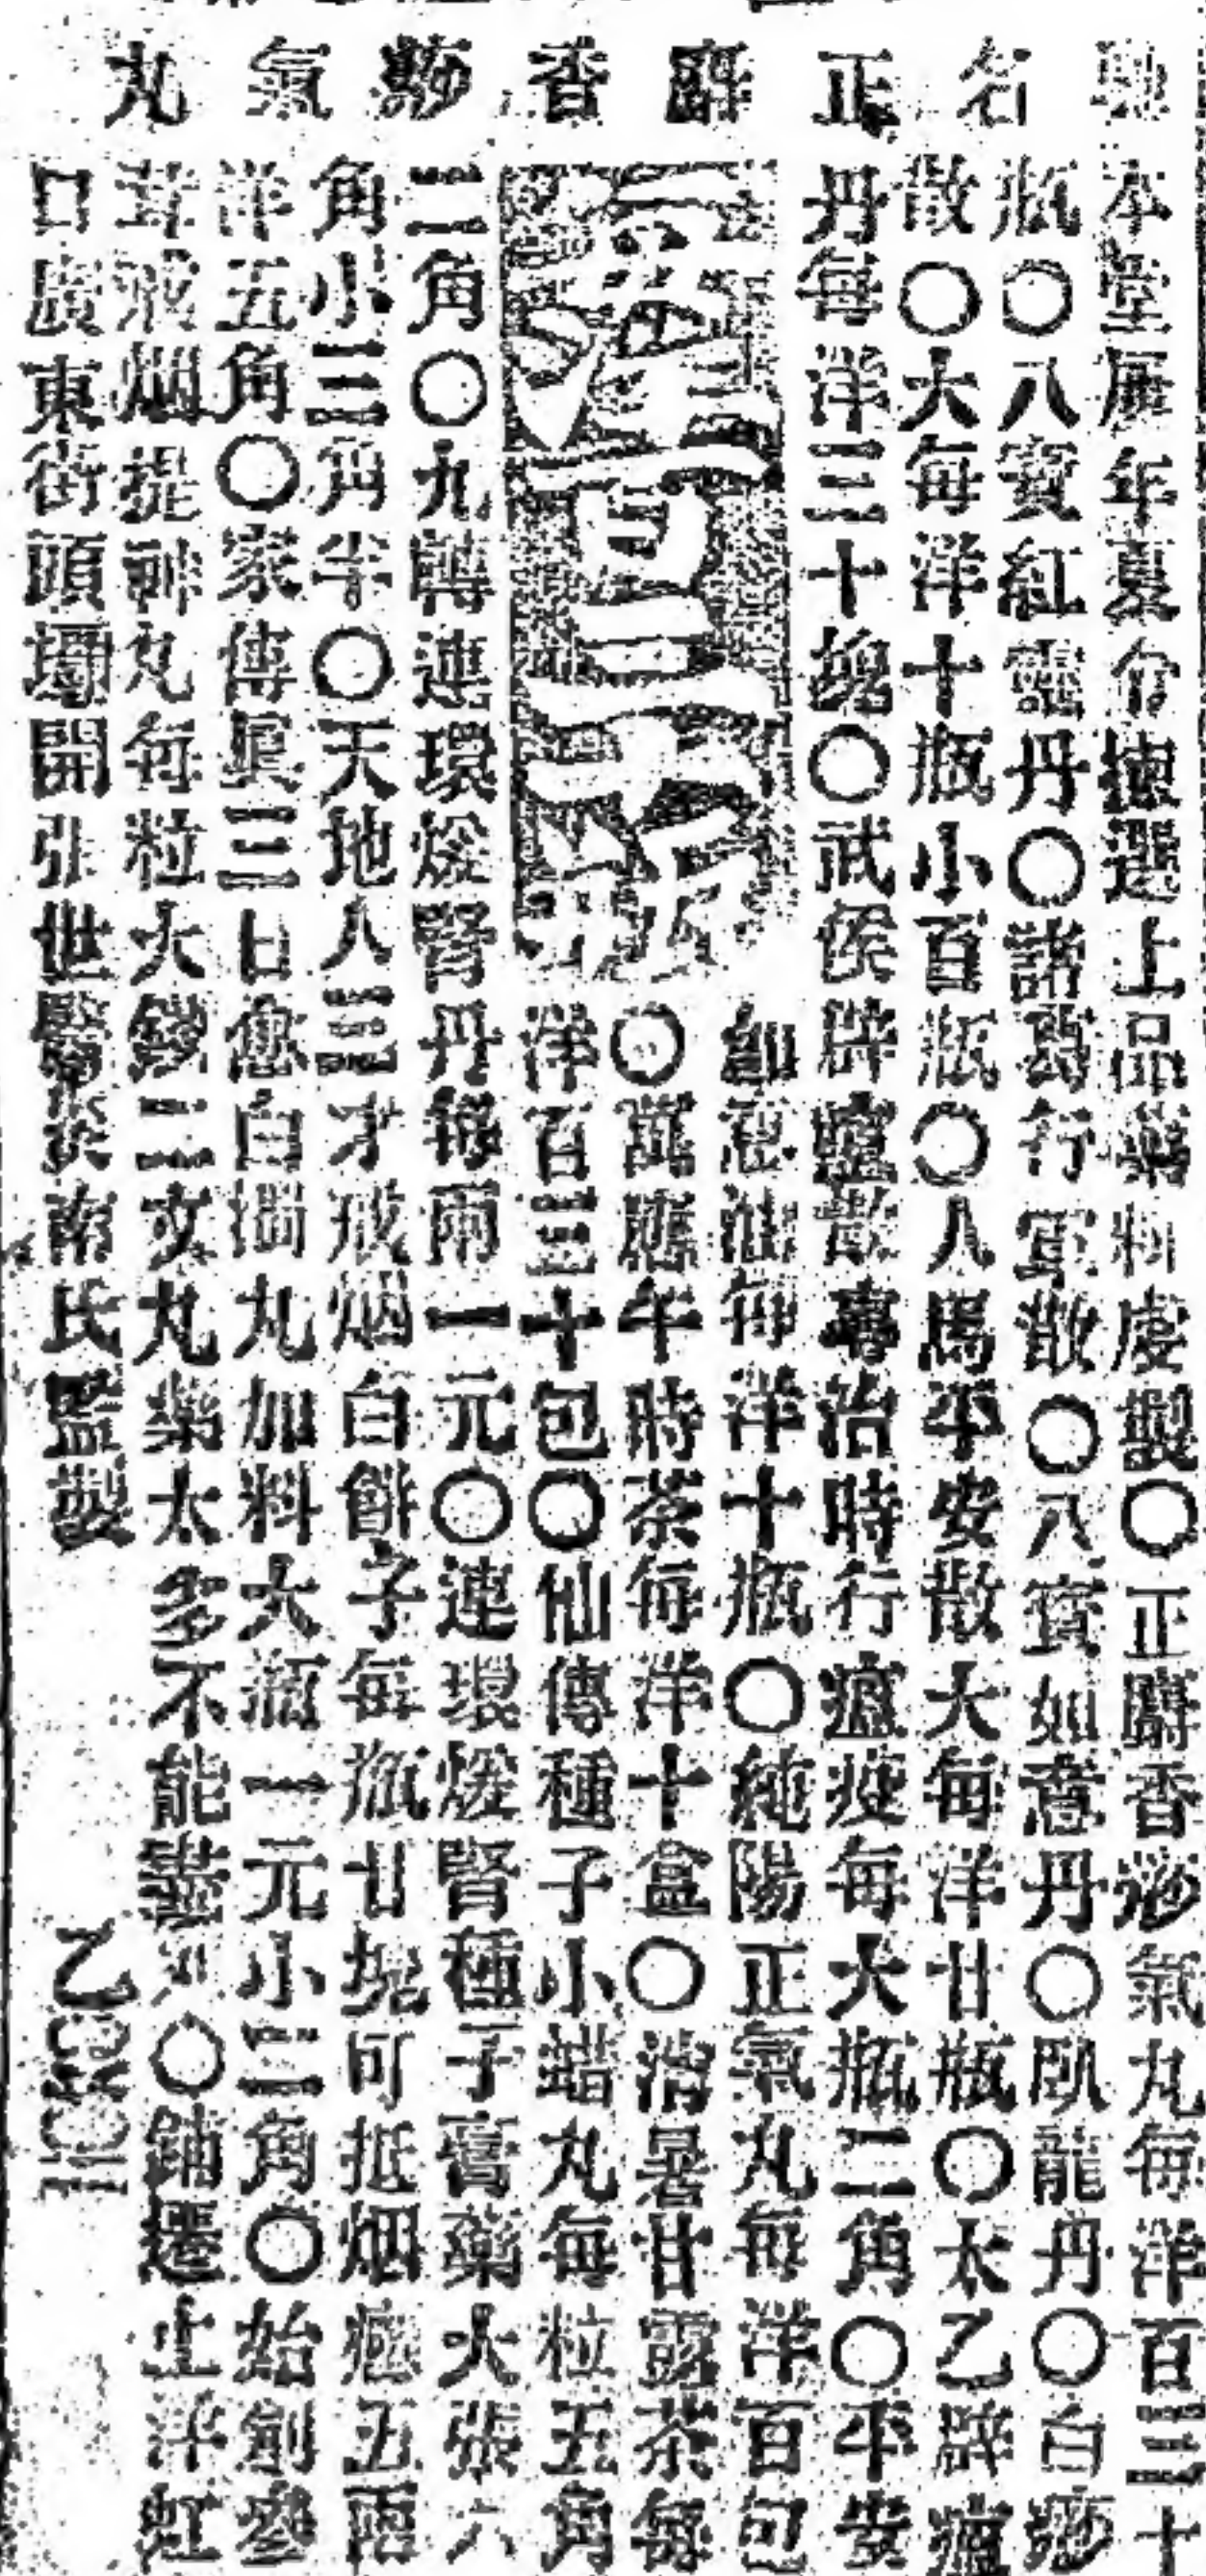 馳名正麝香痧氣丸
本堂歷年夏令揀選上品藥料虔製〇正麝香痧氣丸每洋百三十
瓶〇八寶紅靈丹〇諸葛行軍散〇八寶如意丹〇臥龍丹〇白痧
散〇大每洋十瓶小百瓶〇人馬平安散大每洋廿瓶〇太乙辟瘟
丹每洋三十塊〇武侯辟瘟散專治時行瘟疫每大瓶二角〇平安
油每洋十瓶〇純陽正氣丸每洋百包
〇萬應午時茶每洋十盒〇消暑甘露茶每
洋百三十包〇仙傳種子小蜡丸每粒五角
二角〇九轉連環煖腎丹每兩一元〇連環煖腎種子膏藥大張六
角小三角半〇天地人三才戒烟白餅子每瓶廿塊可抵烟癮五兩
洋五角〇家傳眞三日瘧白搗丸加料大瓶一元小二角〇始創參
茸戒烟提神丸每粒大錢二文丸藥太多不能盡列〇鋪遷上洋虹
口廣東街頭壩開張世醫 南氏監製
乙